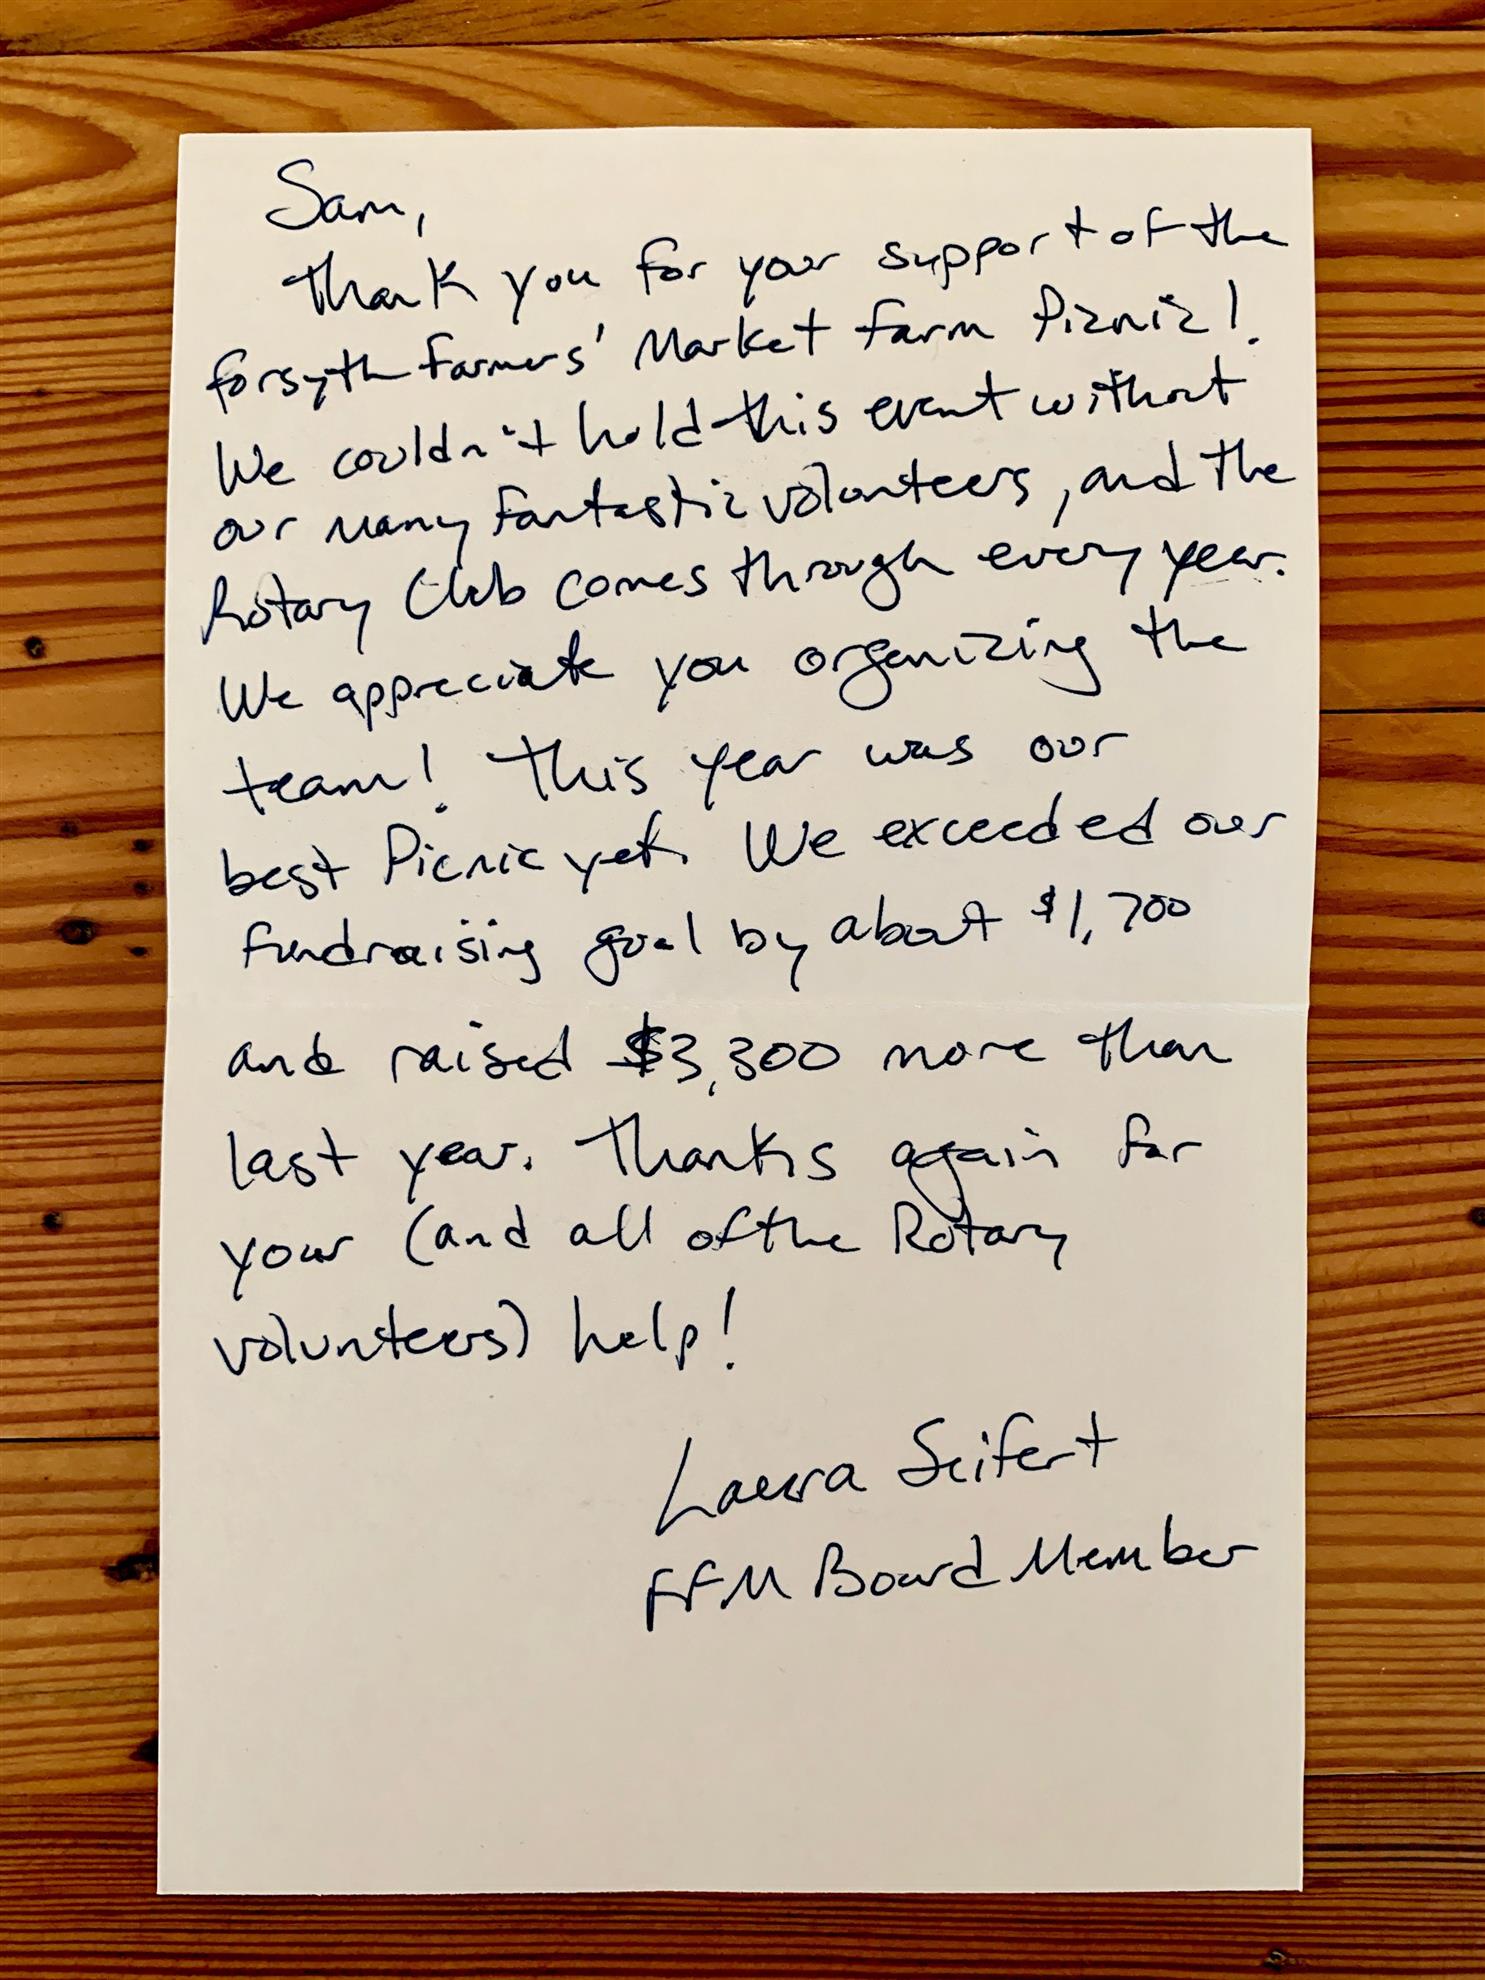 Sam,
Thank you for your support of the
Forsyth Farmers' Market Farm Picnic!
We couldn't hold this event without
our many fantastic volunteers, and the
Rotary Club comes through every year.
We appreciate you organizing the
team! This year was our
best Picnic yet. We exceeded our
fundraising goal by about $1,700
and raised $3,300 more than
last year. Thanks again for
your (and all of the Rotary
volunteers) help!
Laura Seifert
FFM Board Member